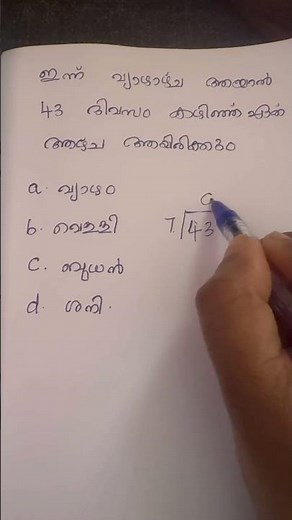 ഇന്ന് വ്യാഴാഴ്ച ആയാൽ
43 ദിവസം കഴിഞ്ഞ് ഏത്
ആഴ്ച ആയിരിക്കും
a. വ്യാഴം
b. വെള്ളി
c. ബുധൻ
d. ശനി.
7 43